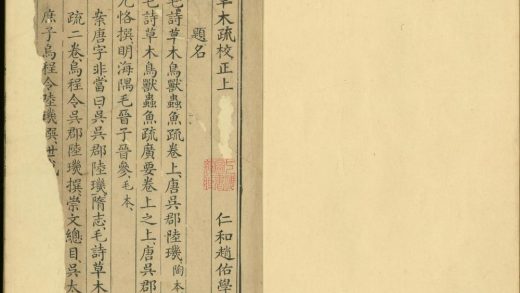 草木疏校正上
仁和趙佑學
題名
毛詩草木鳥獸蟲魚疏卷上唐吳郡陸璣陶本
毛詩草木鳥獸蟲魚疏廣要卷上之上唐吳郡
元恪撰明海隅毛晉子晉參毛本
案唐字非當曰吳吳郡陸璣隋志毛詩草木
疏二卷烏程令吳郡陸璣撰崇文總目吳太
庶子烏程令陸璣撰世